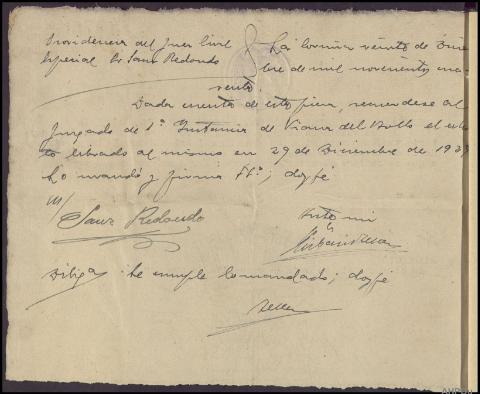 Providencia del Juez Civil
Especial Sr Sanz Redondo
La Coruña veinte de
de mil novecientos cua
renta.
Dada cuenta de esta pieza, recuerdese al
Juzgado de 1ª Instancia de Viana del Bollo el exhor
to librado al mismo en 29 de Diciembre de 1939
Lo mandó y firma Sª; doy fé
M/
Sanz Redondo
Ante mi
Diliga Se cumple lo mandado; doy fé